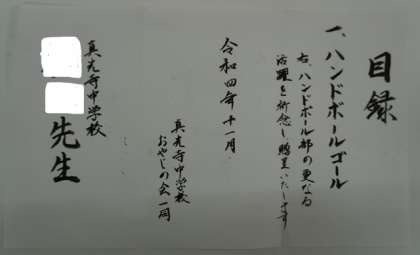 目録
一、ハンドボールゴール
右、ハンドボール部の更なる
活躍を祈念し贈呈いたします
令和四年十一月
真光寺中学校
おやじの会一同
真光寺中学校
先生